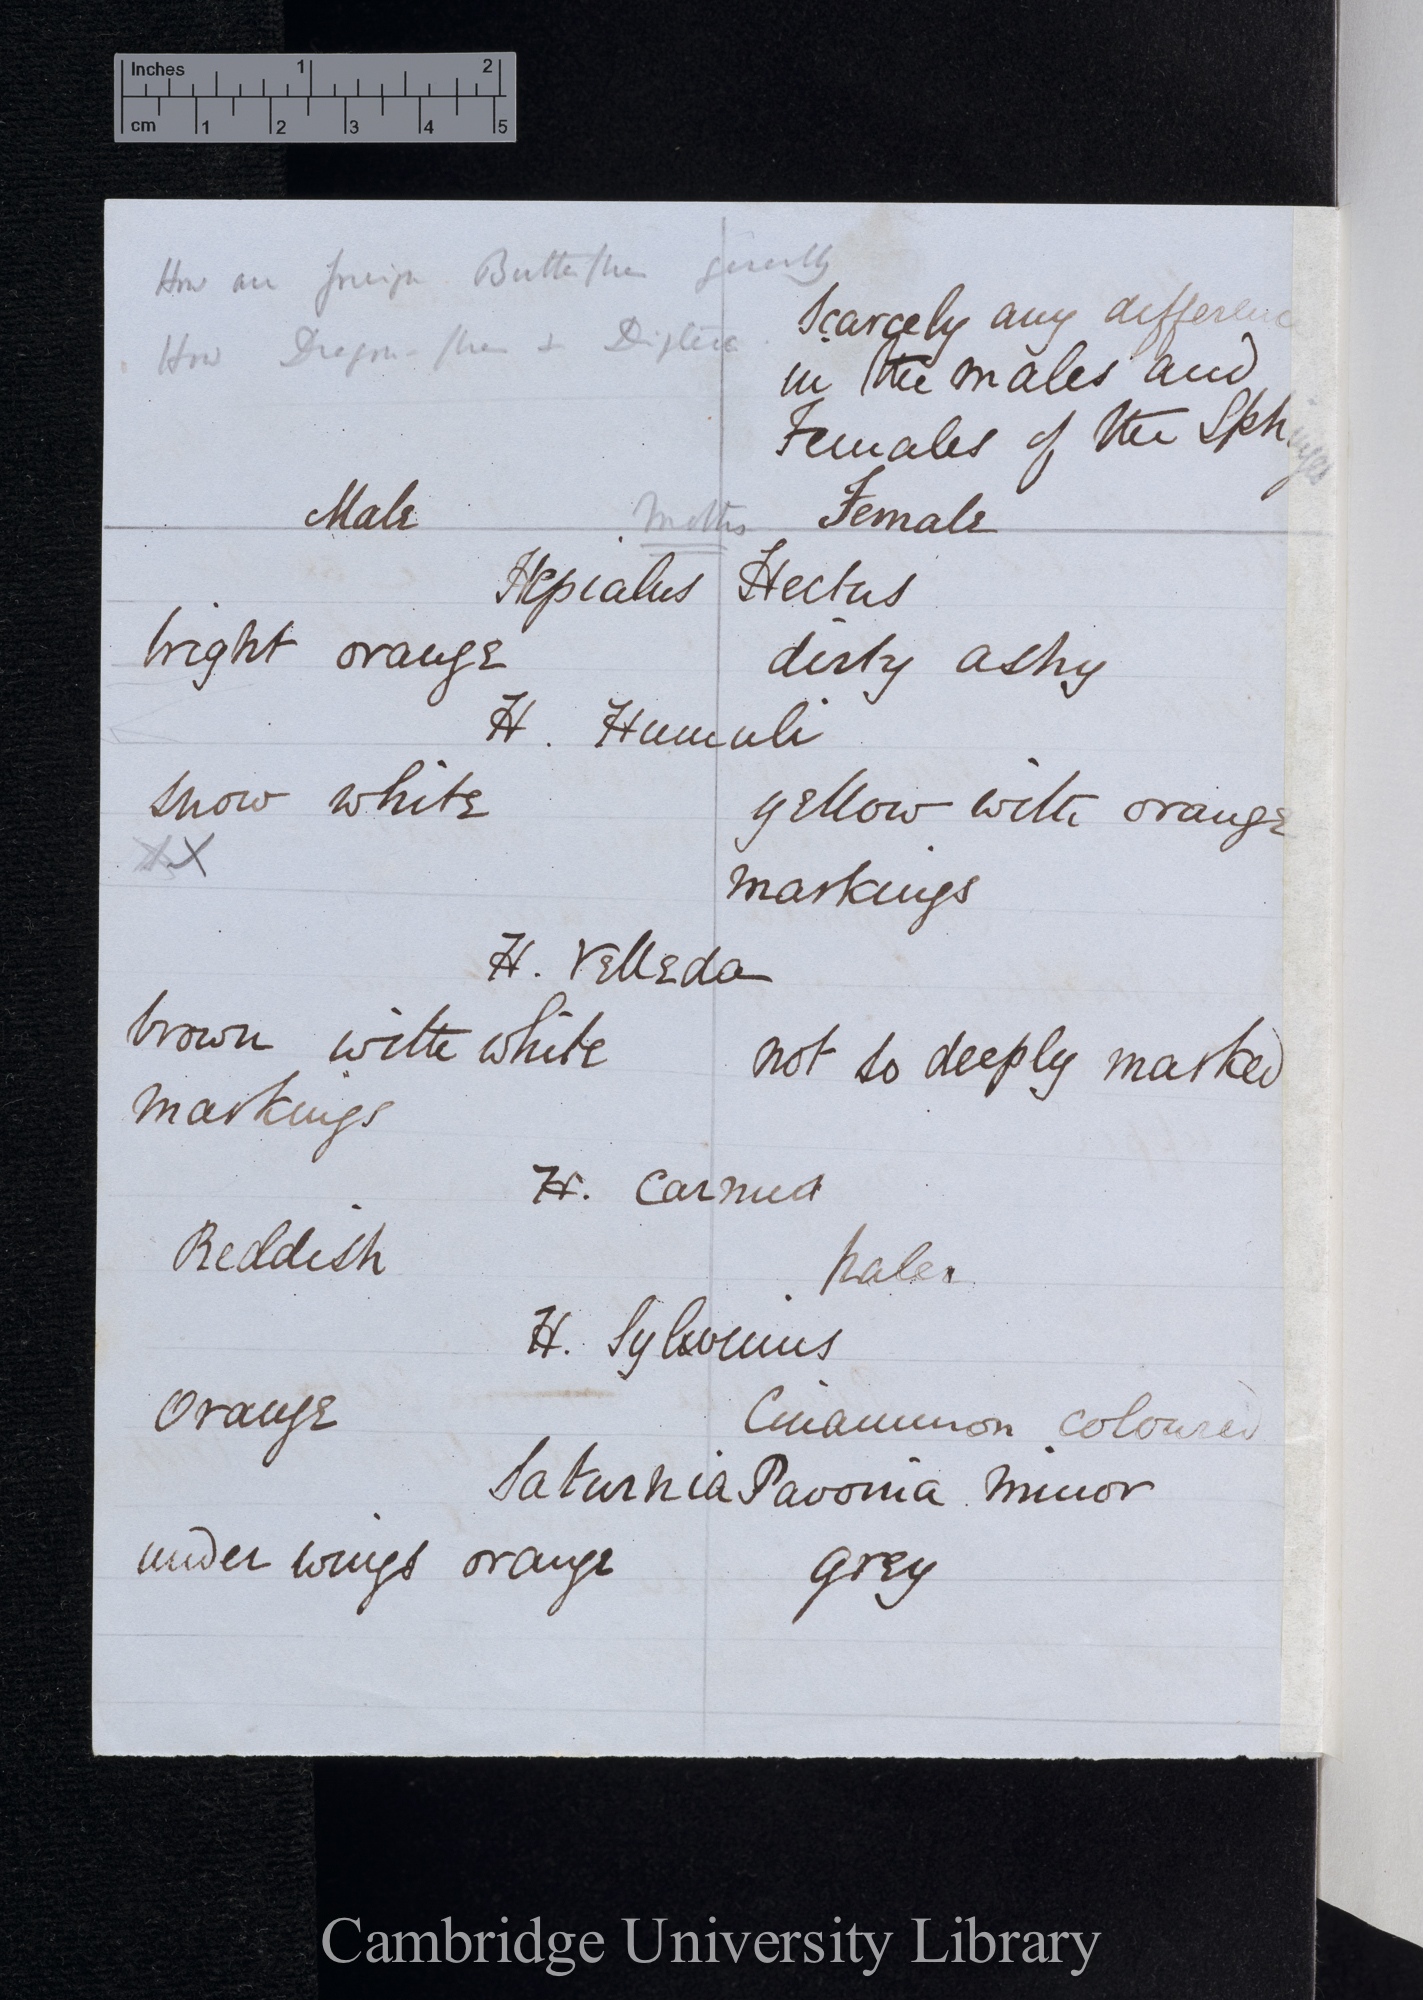 Inches 1 2
cm 1 2 3 4 5
How are foreign Butterflies generally
How Dragon-flies & Diptera.
Scarcely any difference
in the males and
Females of the Sphinges
Male Moths Female
Hepialus Hectus
bright orange dirty ashy
H. Humuli
snow white yellow with orange
markings
H. Velleda
brown with white not so deeply marked
markings
H. Carnus
Reddish paler
H. Sylvinus
Orange Cinammon coloured
Saturnia Pavonia minor
under wings orange grey
Cambridge University Library